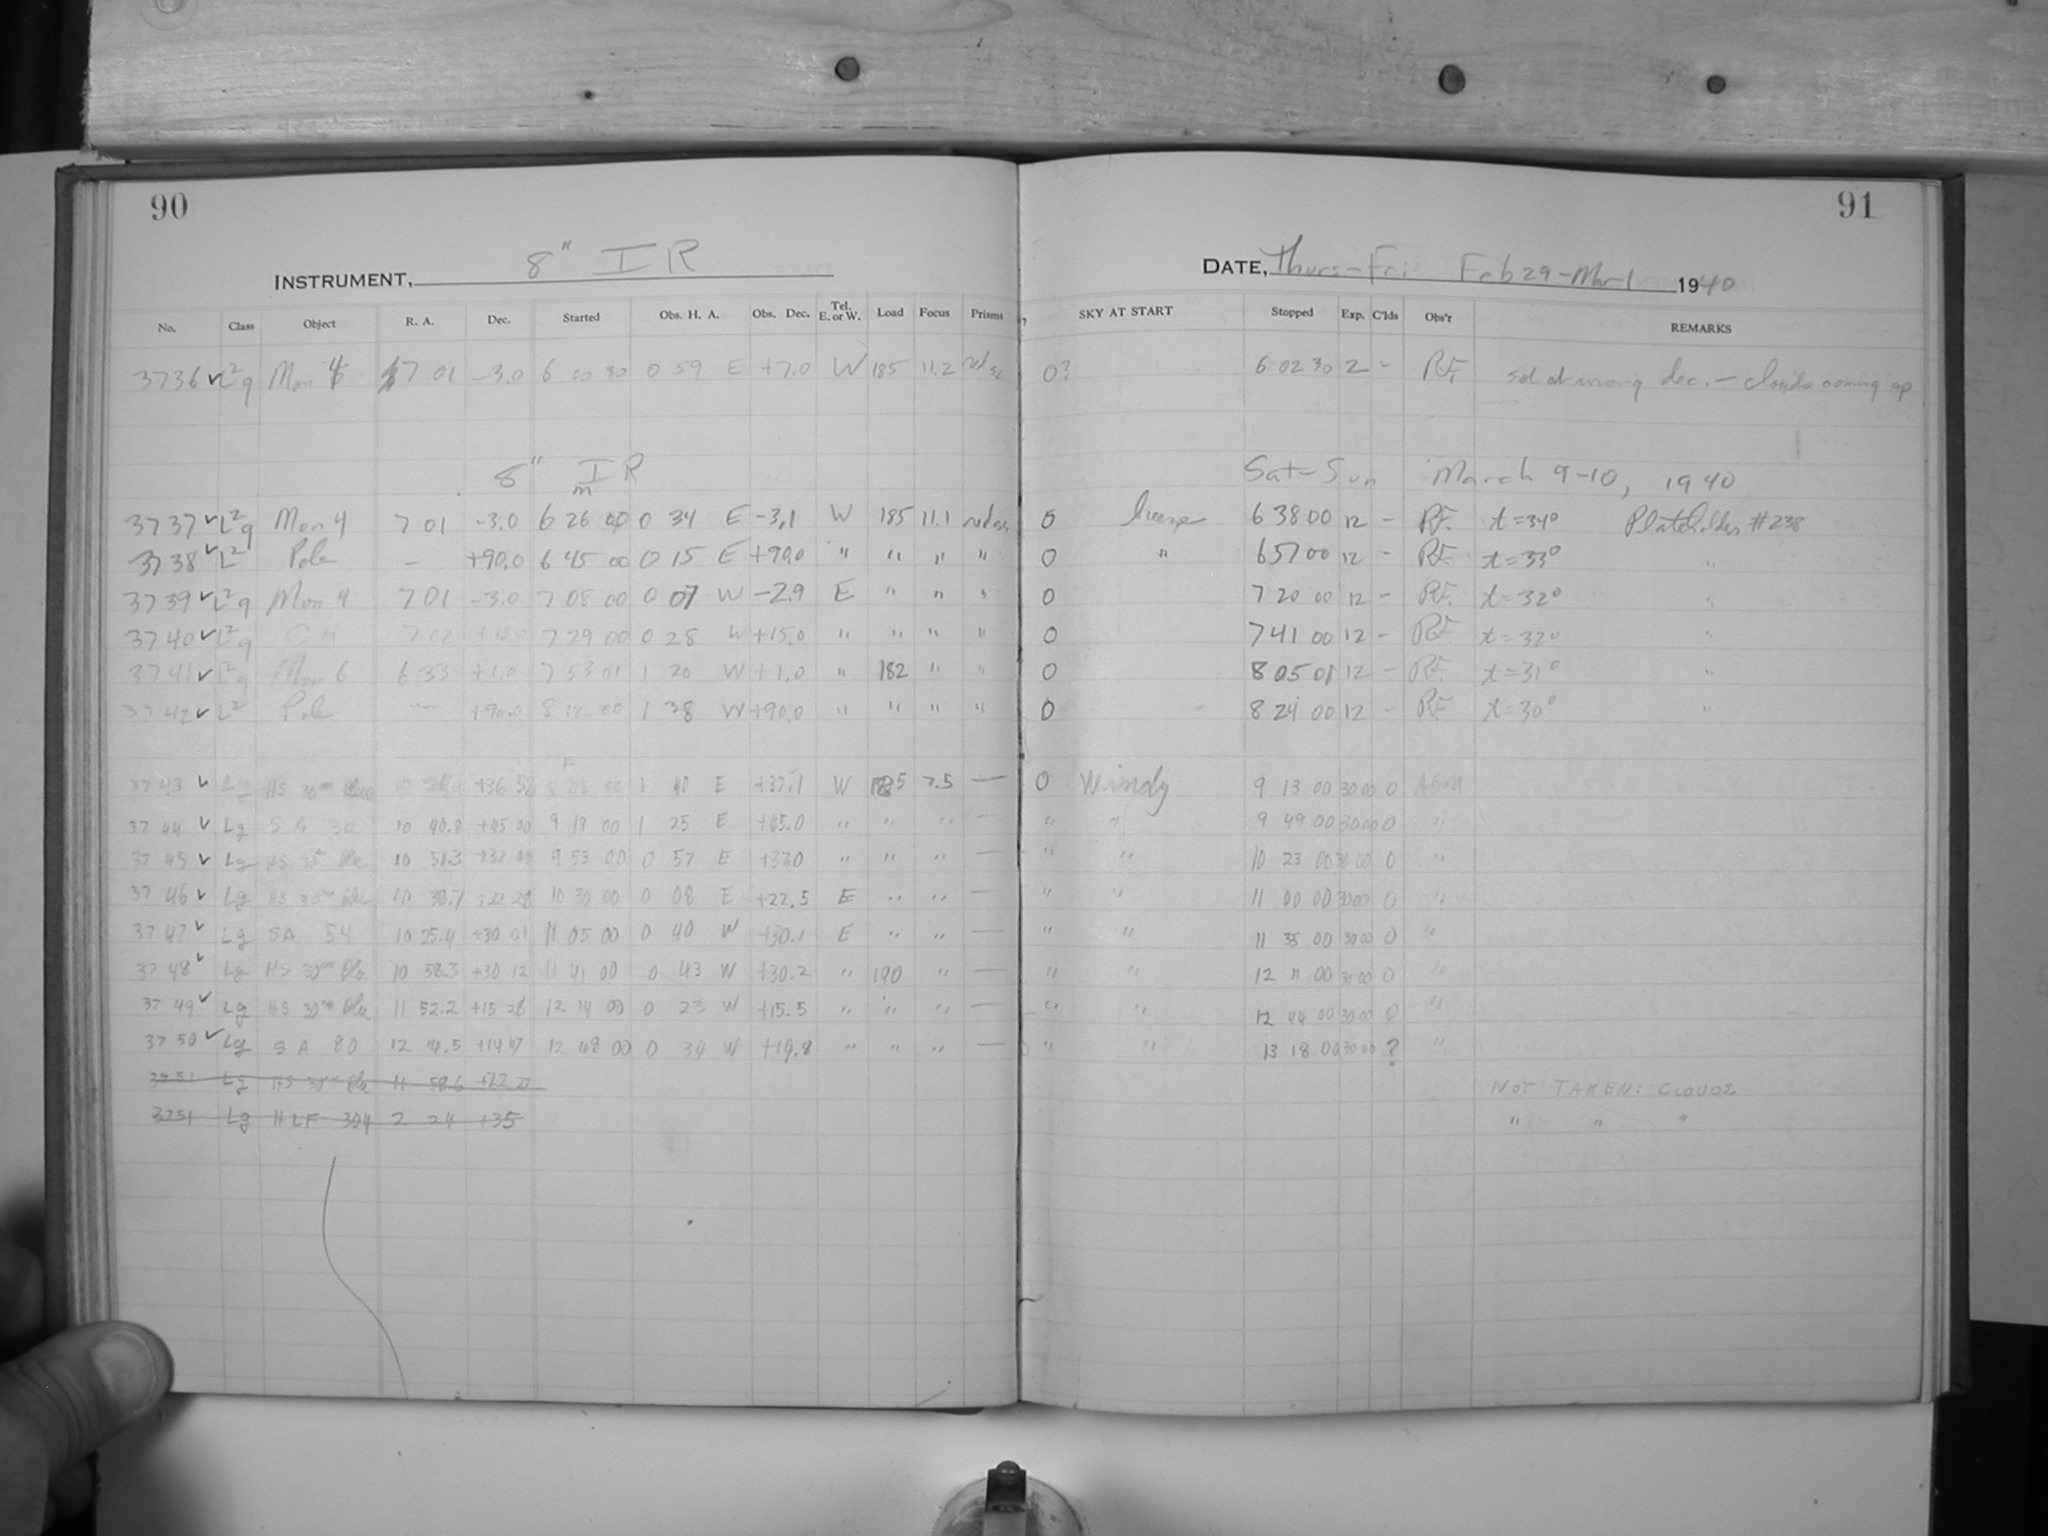 90
91
INSTRUMENT, 8" IR
DATE, Thurs-Fri Feb 29-Mar 1 1940
No. Class Object R. A. Dec. Started Obs. H. A. Obs. Dec. Tel. E. or W. Load Focus Prisms SKY AT START Stopped Exp. C'lds Obs'r REMARKS
3736 ✓ L²g Mon 4 7 01 -3.0 6 00 30 0 59 E +7.0 W 185 11.2 red 0? 6 02 30 2 - RF. set at wrong dec. - clouds coming up
8" IR Sat-Sun March 9-10, 1940
3737 ✓ L²g Mon 4 7 01 -3.0 6 26 00 0 34 E -3.1 W 185 11.1 red 0 breeze 6 38 00 12 - RF. t=34° Plateholder #238
3738 ✓ L² Pole - +90.0 6 45 00 0 15 E +90.0 " " " " 0 " 6 57 00 12 - RF. t=33° "
3739 ✓ L²g Mon 4 7 01 -3.0 7 08 00 0 07 W -2.9 E " " " 0 7 20 00 12 - RF. t=32° "
3740 ✓ L²g 7 02 7 29 00 0 28 W +15.0 " " " " 0 7 41 00 12 - RF. t=32° "
3741 ✓ L²g Mon 6 6 33 +1.0 7 53 01 1 20 W +1.0 " 182 " " 0 8 05 01 12 - RF. t=31° "
3742 ✓ L² Pole - +90.0 8 12 00 1 38 W +90.0 " " " " 0 8 24 00 12 - RF t=30° "
3743 ✓ Lg HS 30m 10 +36 52 1 40 E +37.1 W 185 7.5 — 0 Windy 9 13 00 30 00 0
3744 ✓ Lg SA 30 10 40.8 +45 00 9 19 00 1 25 E +45.0 " " " — " " 9 49 00 30 00 0 "
3745 ✓ Lg HS 10 51.3 +37 9 53 00 0 57 E +37.0 " " " — " " 10 23 00 30 00 0 "
3746 ✓ Lg HS 30m 10 38.7 +22 28 10 30 00 0 08 E +22.5 E " " — " " 11 00 00 30 00 0 "
3747 ✓ Lg SA 54 10 25.4 +30 01 11 05 00 0 40 W +30.1 E " " — " " 11 35 00 30 00 0 "
3748 ✓ Lg HS 30m 10 58.3 +30 12 11 41 00 0 43 W +30.2 " 190 " — " " 12 11 00 30 00 0 "
3749 ✓ Lg HS 30m 11 52.2 +15 28 12 14 00 0 23 W +15.5 " " " — " " 12 44 00 30 00 0 "
3750 ✓ Lg SA 80 12 4.5 +14 47 12 48 00 0 39 W +14.8 " " " — " " 13 18 00 30 00 ? "
3751 Lg HS 30m 11 58.6 +22 NOT TAKEN: CLOUDS
3751 Lg HLF 304 2 24 +35 " " "